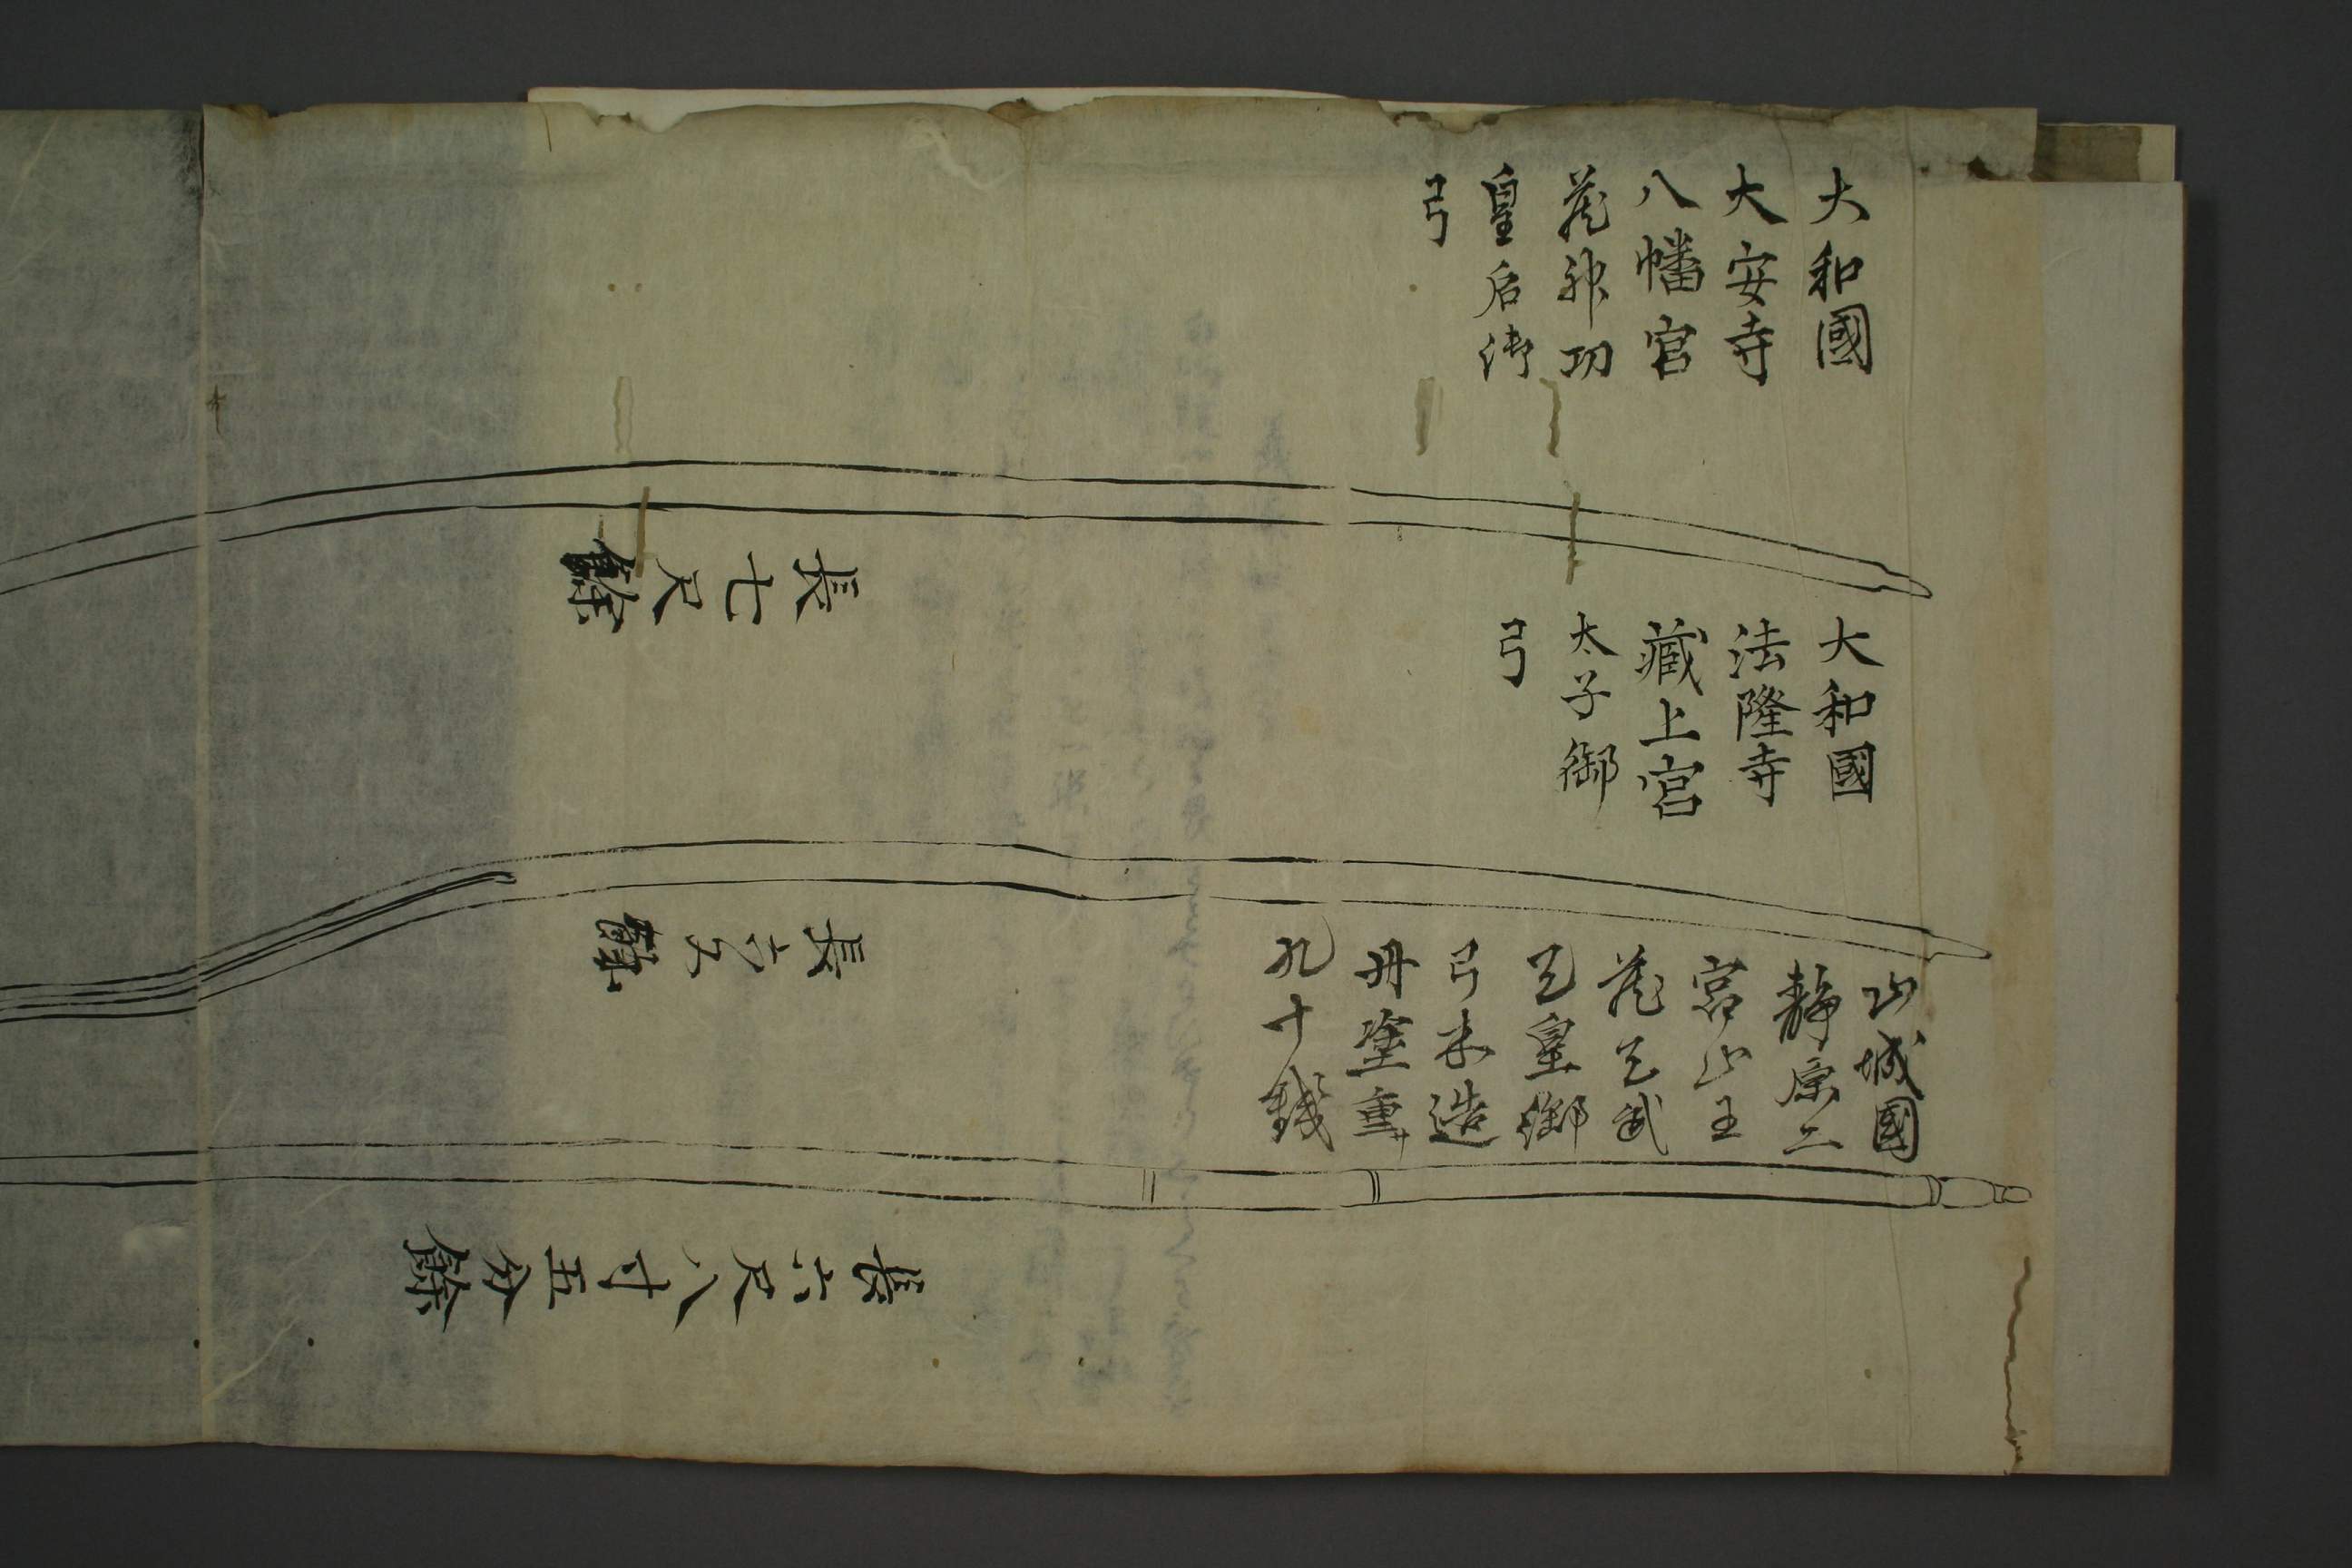 大和國
大安寺
八幡宮
蔵神功
皇后御
弓
長七尺餘
大和國
法隆寺
藏上宮
太子御
弓
長六尺餘
山城國
静原二
宮山王
蔵天武
天皇御
弓木造
丹塗重
九十錢
長六尺八寸五分餘